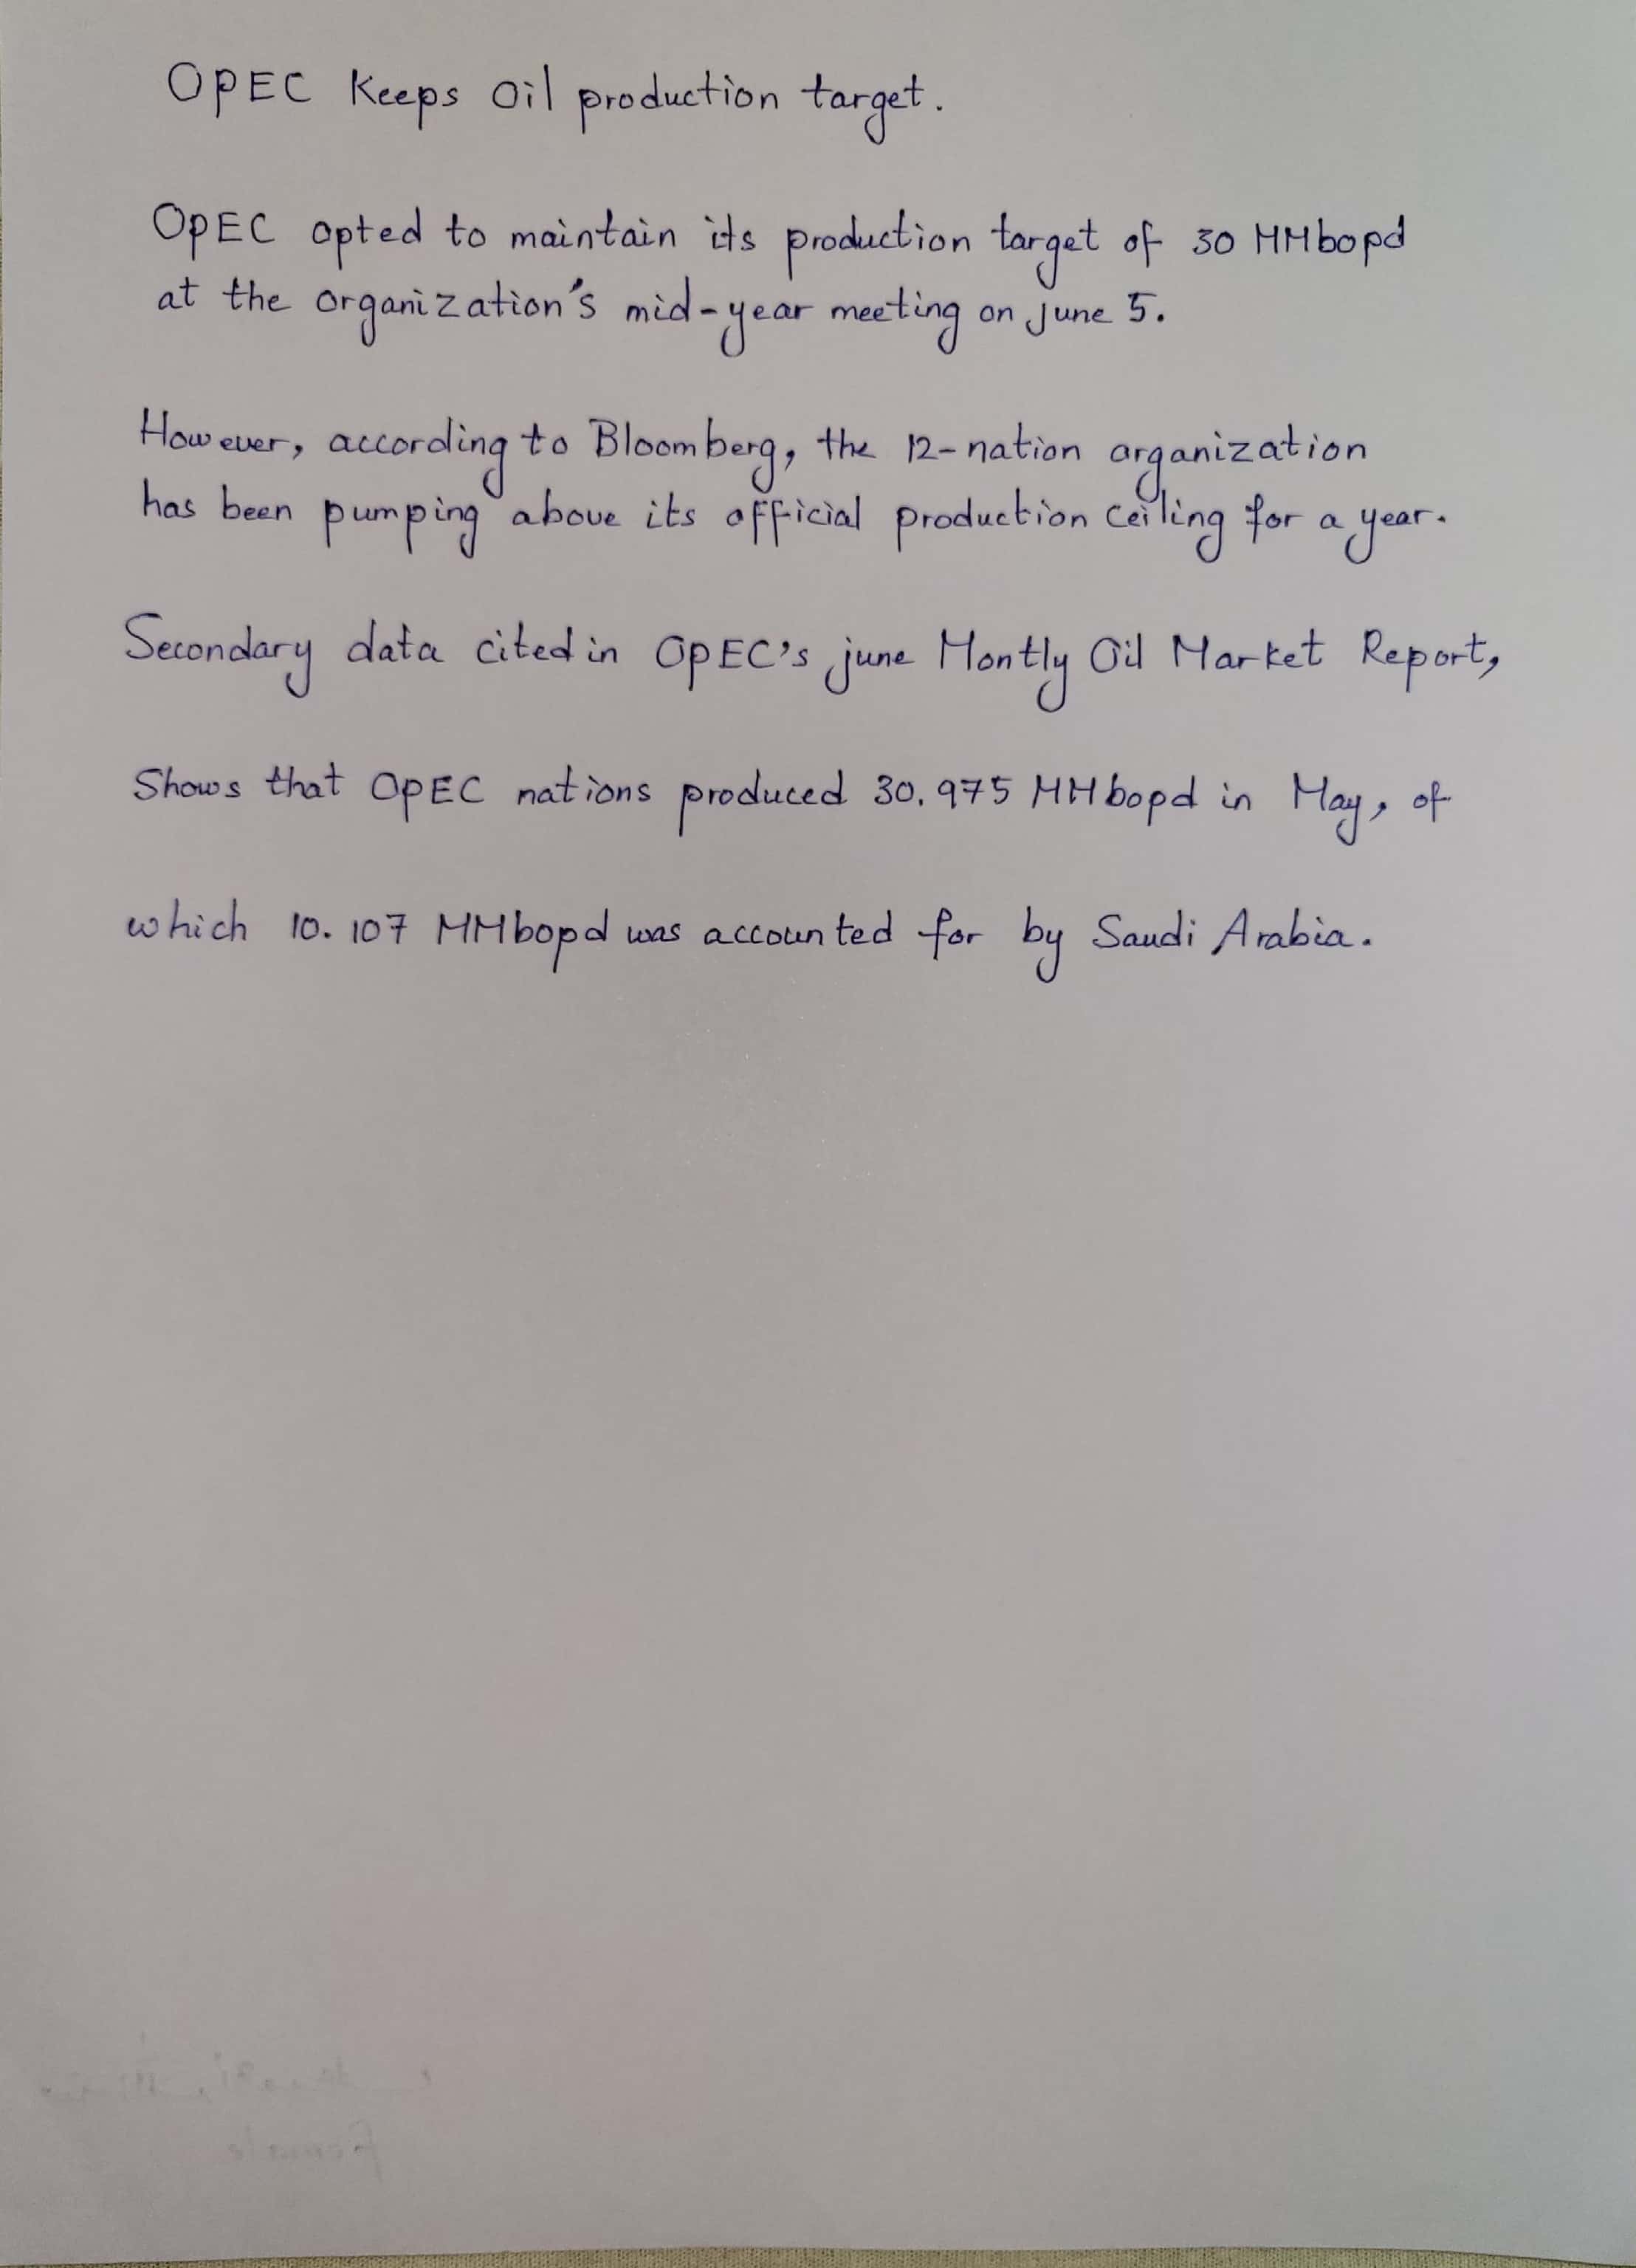 OPEC Keeps Oil production target.
OPEC opted to maintain its production target of 30 MMbopd
at the organization's mid-year meeting on june 5.
However, according to Bloomberg, the 12-nation organization
has been pumping above its official production ceiling for a year.
Secondary data cited in OPEC's june Montly Oil Market Report,
Shows that OPEC nations produced 30.975 MMbopd in May, of
which 10.107 MMbopd was accounted for by Saudi Arabia.